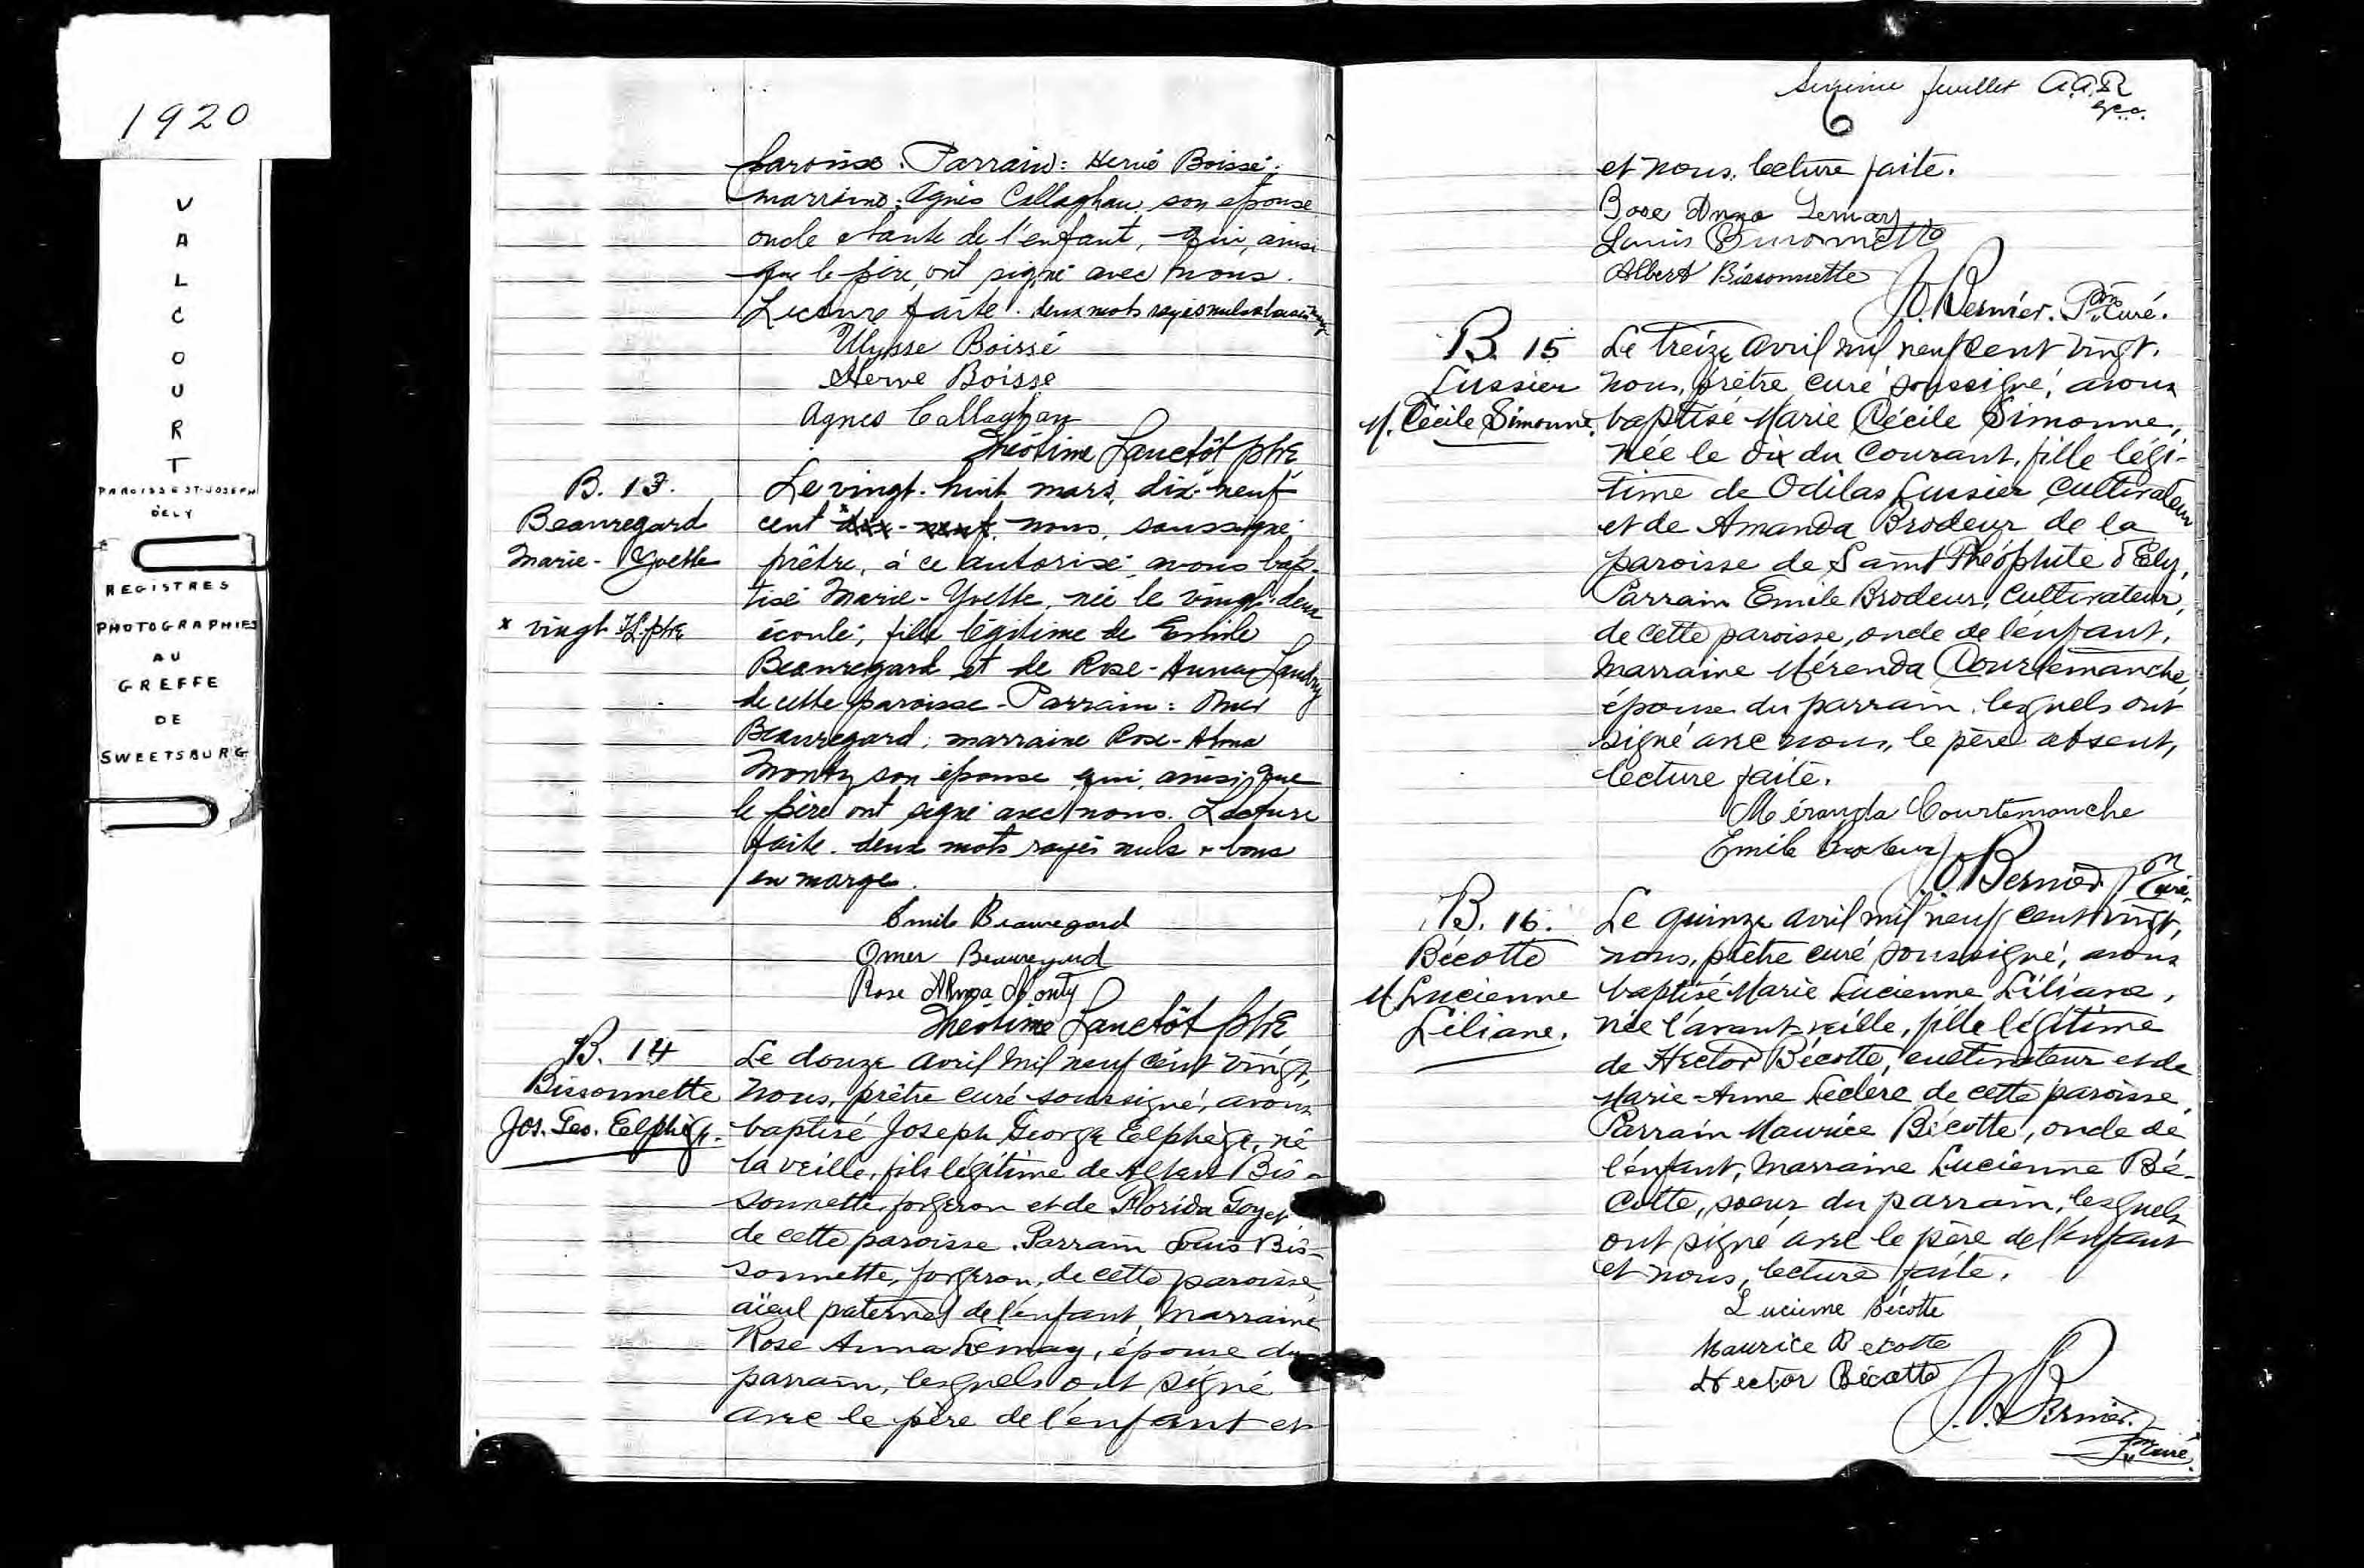 1920
VALCOURT
PAROISSE ST-JOSEPH
D'ELY
REGISTRES
PHOTOGRAPHIES
AU
GREFFE
DE
SWEETSBURG
paroisse. Parrain: Hervé Boissé;
marraine: Agnès Callaghan son épouse
oncle et tante de l'enfant, qui, ainsi
que le père, ont signé avec nous.
Lecture faite. deux mots rayés nuls
Ulysse Boissé
Herve Boisse
Agnes Callaghan
Théotime Lanctôt ptre
B. 13.
Beauregard
Marie-Yvette
x vingt T.L. ptre
Le vingt-huit mars, dix-neuf
cent x dix-neuf, nous, soussigné
prêtre, à ce autorisé avons bap-
tisé Marie-Yvette, née le vingt-deux
écoulé, fille légitime de Emile
Beauregard et de Rose-Anna Landry
de cette paroisse - Parrain: Omer
Beauregard; marraine Rose-Alma
Monty son épouse qui, ainsi que
le père ont signé avec nous. Lecture
faite. deux mots rayés nuls + bons
en marge.
Emile Beauregard
Omer Beauregard
Rose Alma Monty
Théotime Lanctôt ptre
B. 14
Bissonnette
Jos. Geo. Eelphège.
Le douze avril mil neuf cent vingt,
nous, prêtre curé soussigné, avons
baptisé Joseph George Eelphège, né
la veille, fils légitime de Albert Bis-
sonnette, forgeron et de Florida Goyet
de cette paroisse. Parrain Louis Bis-
sonnette, forgeron, de cette paroisse,
aïeul paternel de l'enfant, Marraine
Rose Anna Lemay, épouse du
parrain, lesquels ont signé
avec le père de l'enfant et
Sixième feuillet A.A.R
6
et nous, lecture faite.
Rose Anna Lemay
Louis Bissonnette
Albert Bissonnette
J.O. Bernier. Ptre Curé.
B. 15
Lussier
M. Cécile Simonne.
Le treize avril mil neuf cent vingt,
nous, prêtre curé soussigné, avons
baptisé Marie Cécile Simonne,
née le dix du courant, fille légi-
time de Odilas Lussier cultivateur
et de Amanda Brodeur de la
paroisse de Saint Théophile d'Ely,
Parrain Emile Brodeur, cultivateur,
de cette paroisse, oncle de l'enfant,
Marraine Mérenda Courtemanche,
épouse du parrain, lesquels ont
signé avec nous, le père absent,
lecture faite.
Méranda Courtemanche
Emile Brodeur
J.O. Bernier Ptre Curé.
B. 16.
Bécotte
M Lucienne
Liliane.
Le quinze avril mil neuf cent vingt,
nous, prêtre curé soussigné, avons
baptisé Marie Lucienne Liliane,
née l'avant-veille, fille légitime
de Hector Bécotte, cultivateur et de
Marie-Anne Leclerc de cette paroisse,
Parrain Maurice Bécotte, oncle de
l'enfant, Marraine Lucienne Bé-
cotte, soeur du parrain, lesquels
ont signé avec le père de l'enfant
et nous, lecture faite.
Lucienne Bécotte
Maurice Becotte
Hector Bécotte
J.O. Bernier.
Ptre Curé.